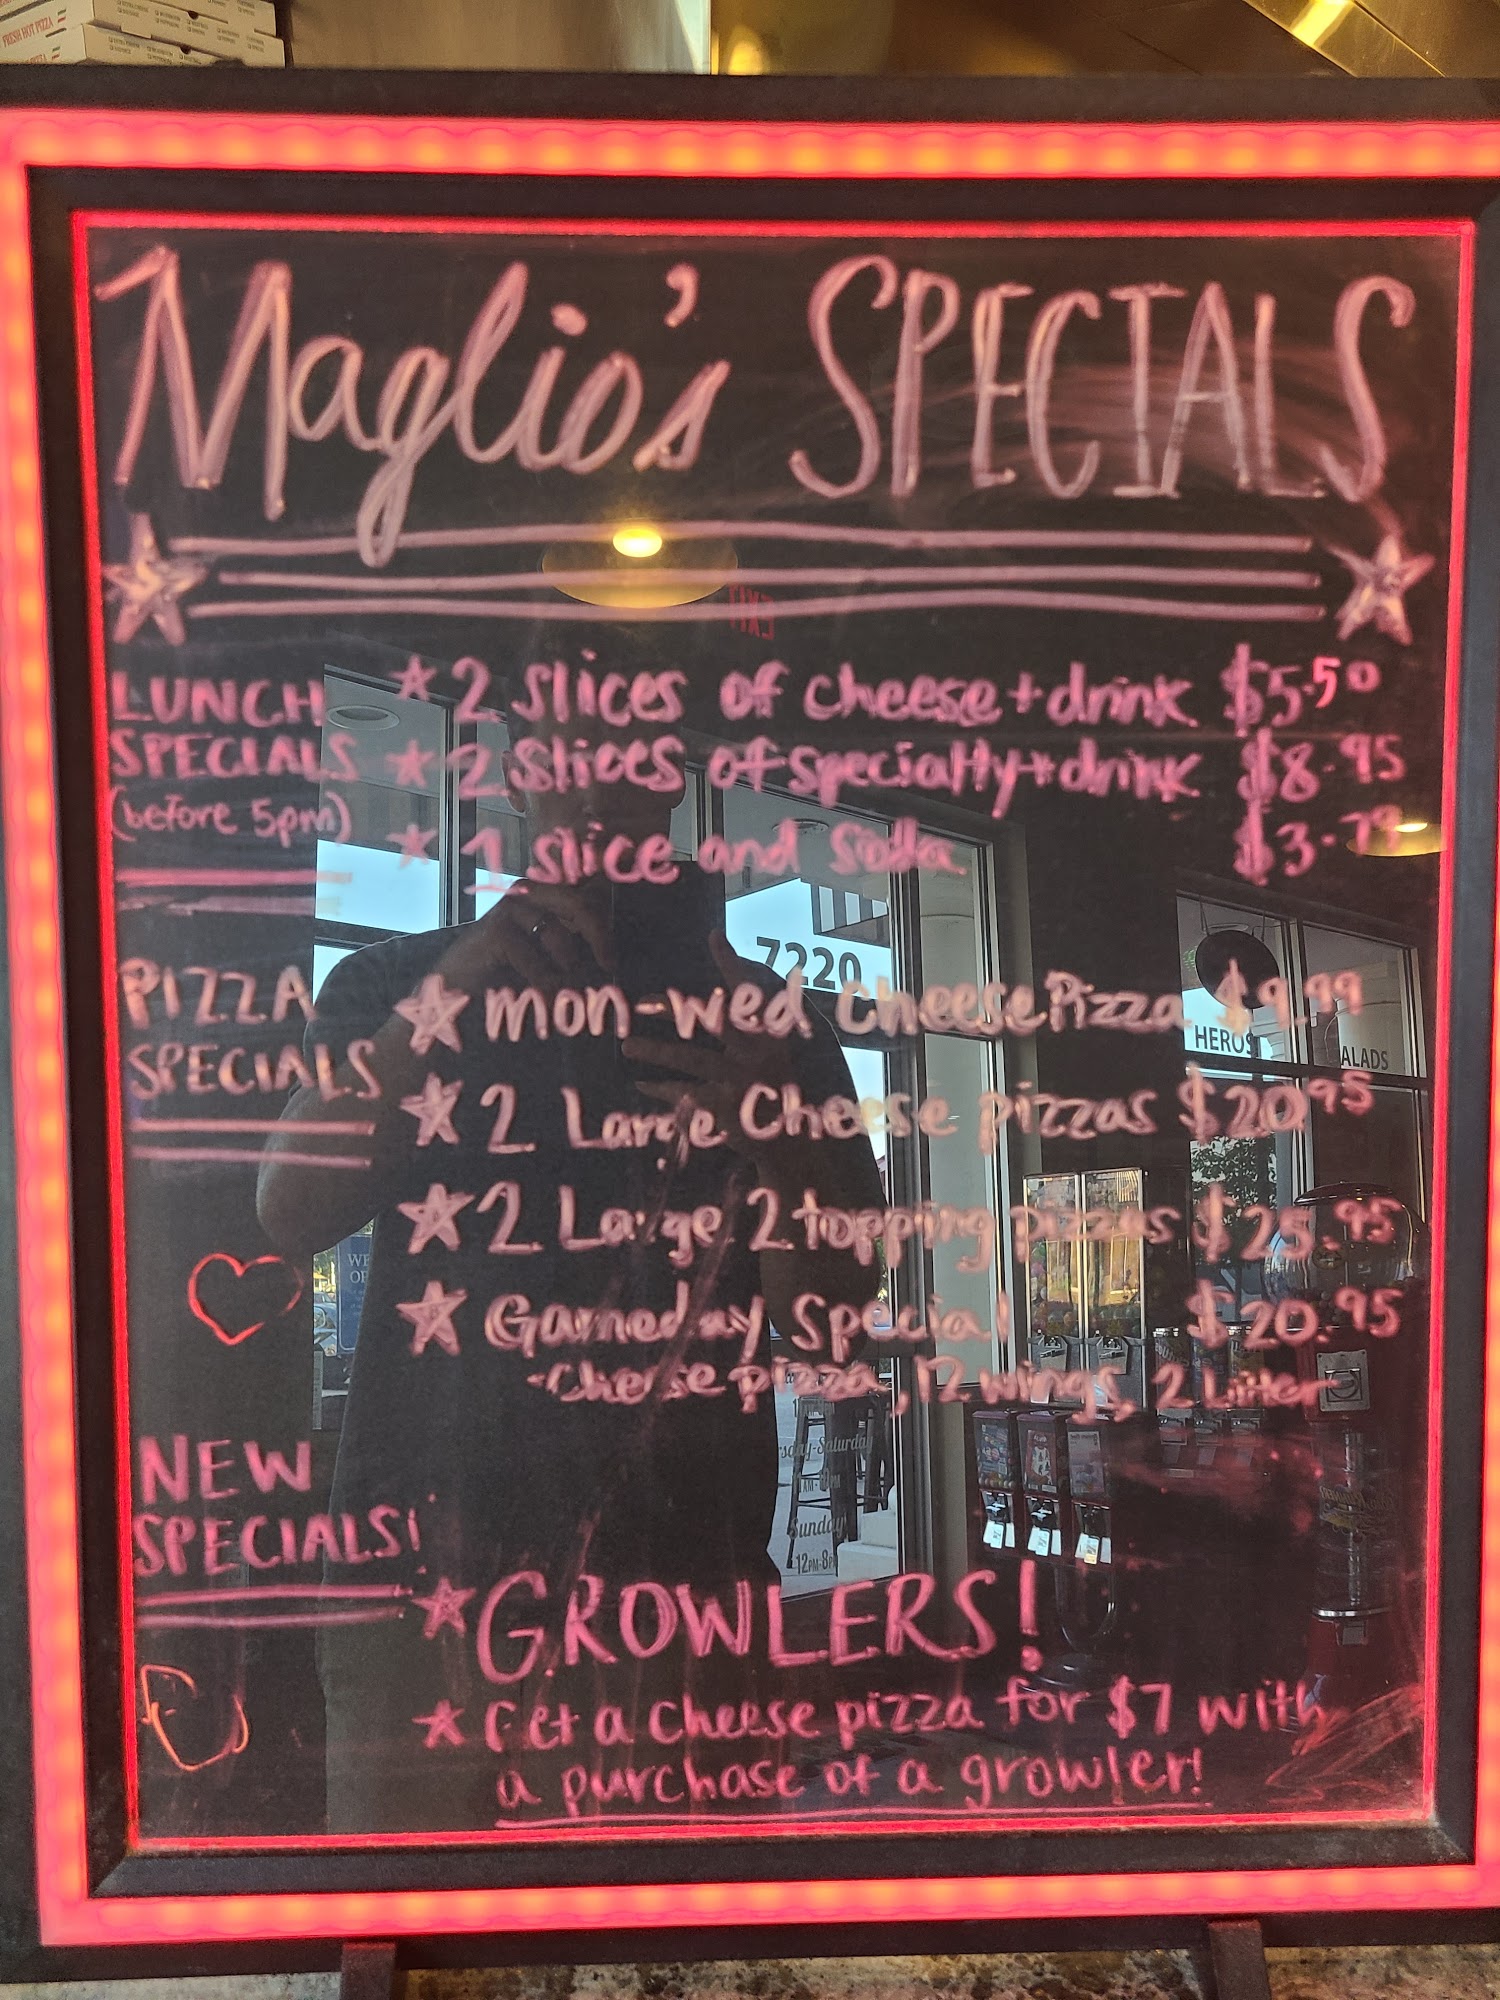 FRESH HOT PIZZA
Maglio's SPECIALS
LUNCH
SPECIALS
(before 5pm)
★ 2 slices of cheese + drink $5.50
★ 2 slices of specialty + drink $8.95
★ 1 slice and soda $3.79
PIZZA
SPECIALS
★ mon-wed Cheese Pizza $9.99
★ 2 Large Cheese pizzas $20.95
★ 2 Large 2 topping pizzas $25.95
★ Gameday Special $20.95
-Cheese pizza, 12 wings, 2 Liter
NEW
SPECIALS!
★ GROWLERS!
★ Get a cheese pizza for $7 with
a purchase of a growler!
7220
HEROS
ALADS
EXIT
Sunday
12PM-8PM